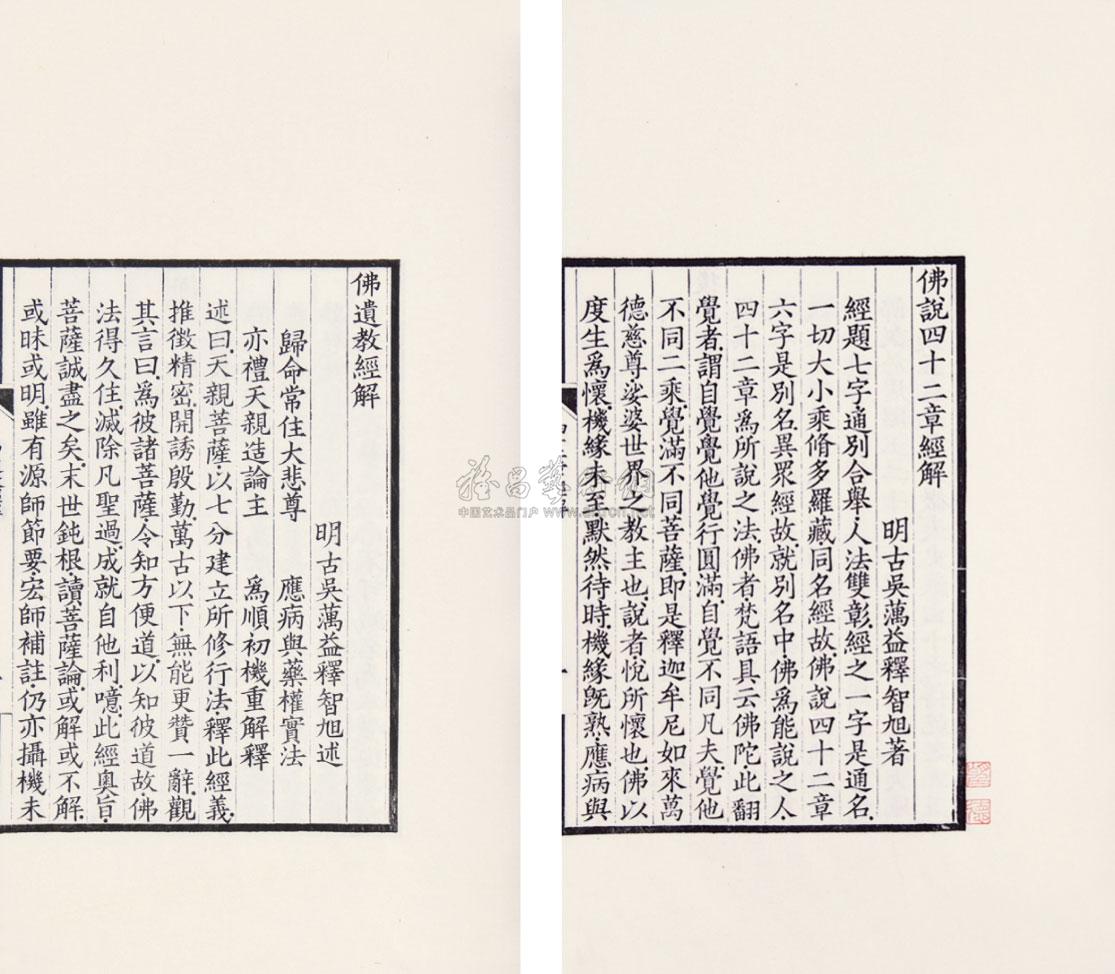 佛說四十二章經解
明古吳蕅益釋智旭著
經題七字通別合舉人法雙彰經之一字是通名
一切大小乘脩多羅藏同名經故佛說四十二章
六字是別名異眾經故就別名中佛爲能說之人
四十二章爲所說之法佛者梵語具云佛陀此翻
覺者謂自覺覺他覺行圓滿自覺不同凡夫覺他
不同二乘覺滿不同菩薩即是釋迦牟尼如來萬
德慈尊娑婆世界之教主也說者悅所懷也佛以
度生爲懷機緣未至默然待時機緣旣熟應病與
佛遺教經解
明古吳蕅益釋智旭述
歸命常住大悲尊 應病與藥權實法
亦禮天親造論主 爲順初機重解釋
述曰天親菩薩以七分建立所修行法釋此經義
推徵精密開誘殷勤萬古以下無能更贊一辭觀
其言曰爲彼諸菩薩令知方便道以知彼道故佛
法得久住滅除凡聖過成就自他利噫此經奧旨
菩薩誠盡之矣末世鈍根讀菩薩論或解或不解
或昧或明雖有源師節要宏師補註仍亦攝機未
中国艺术品门户